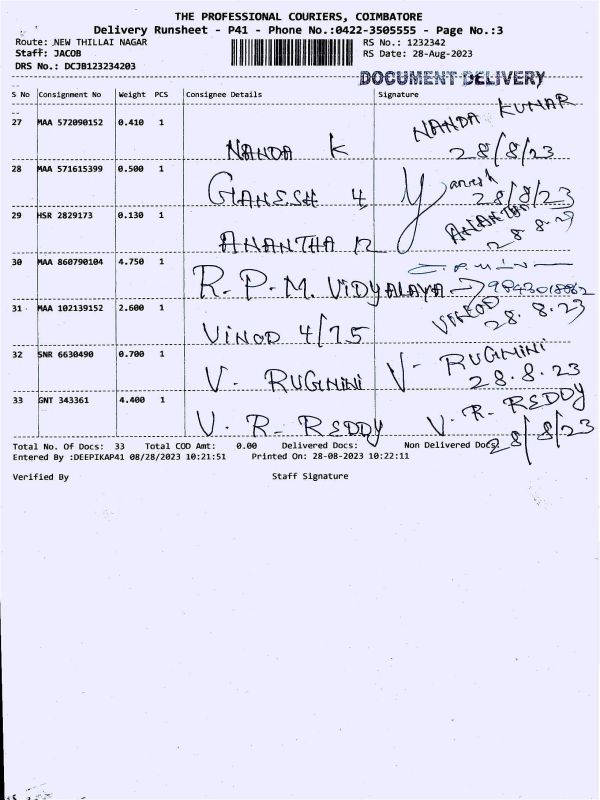 THE PROFESSIONAL COURIERS, COIMBATORE
Delivery Runsheet - P41 - Phone No.:0422-3505555 - Page No.:3
Route: NEW THILLAI NAGAR RS No.: 1232342
Staff: JACOB RS Date: 28-Aug-2023
DRS No.: DCJB123234203
DOCUMENT DELIVERY
S No Consignment No Weight PCS Consignee Details Signature
--
27 MAA 572090152 0.410 1 NANDA K NANDA KUMAR
28/8/23
28 MAA 571615399 0.500 1 GANESH 4
28/8/23
29 HSR 2829173 0.130 1 ANANTHA R ANANTHA
28 8-23
30 MAA 860790104 4.750 1 R. P. M. VIDYALAYA 9843018862
31 MAA 102139152 2.600 1 VINOD 4/75 VINOD
28. 8.23
32 SNR 6630490 0.700 1 V. RUGMINI V. RUGMINI
28.8.23
33 GNT 343361 4.400 1 V. R. REDDY V. R. REDDY
28/8/23
Total No. Of Docs: 33 Total COD Amt: 0.00 Delivered Docs: Non Delivered Docs:
Entered By :DEEPIKAP41 08/28/2023 10:21:51 Printed On: 28-08-2023 10:22:11
Verified By Staff Signature